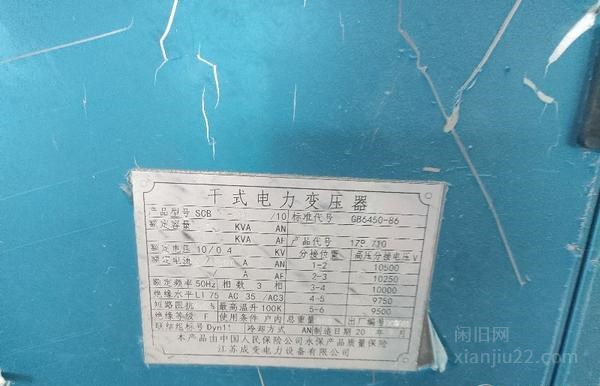 干式电力变压器
产品型号 SCB /10 标准代号 GB6450-86
额定容量 KVA AN
KVA AF 产品代号 179.710
额定电压 10/0.4 KV 分接位置 高压分接电压 V
额定电流 / A AN 1-2 10500
/ A AF 2-3 10250
额定频率 50Hz 相数 3 相 3-4 10000
绝缘水平 LI 75 AC 35 /AC3 4-5 9750
短路阻抗 % 最高温升 100K 5-6 9500
绝缘等级 F 使用条件 户内 总重量 出厂编号
联结组标号 Dyn11 冷却方式 AN 制造日期 20 年 月
本产品由中国人民保险公司永保产品质量保险
江苏成变电力设备有限公司
闲旧网
xianjiu22.com